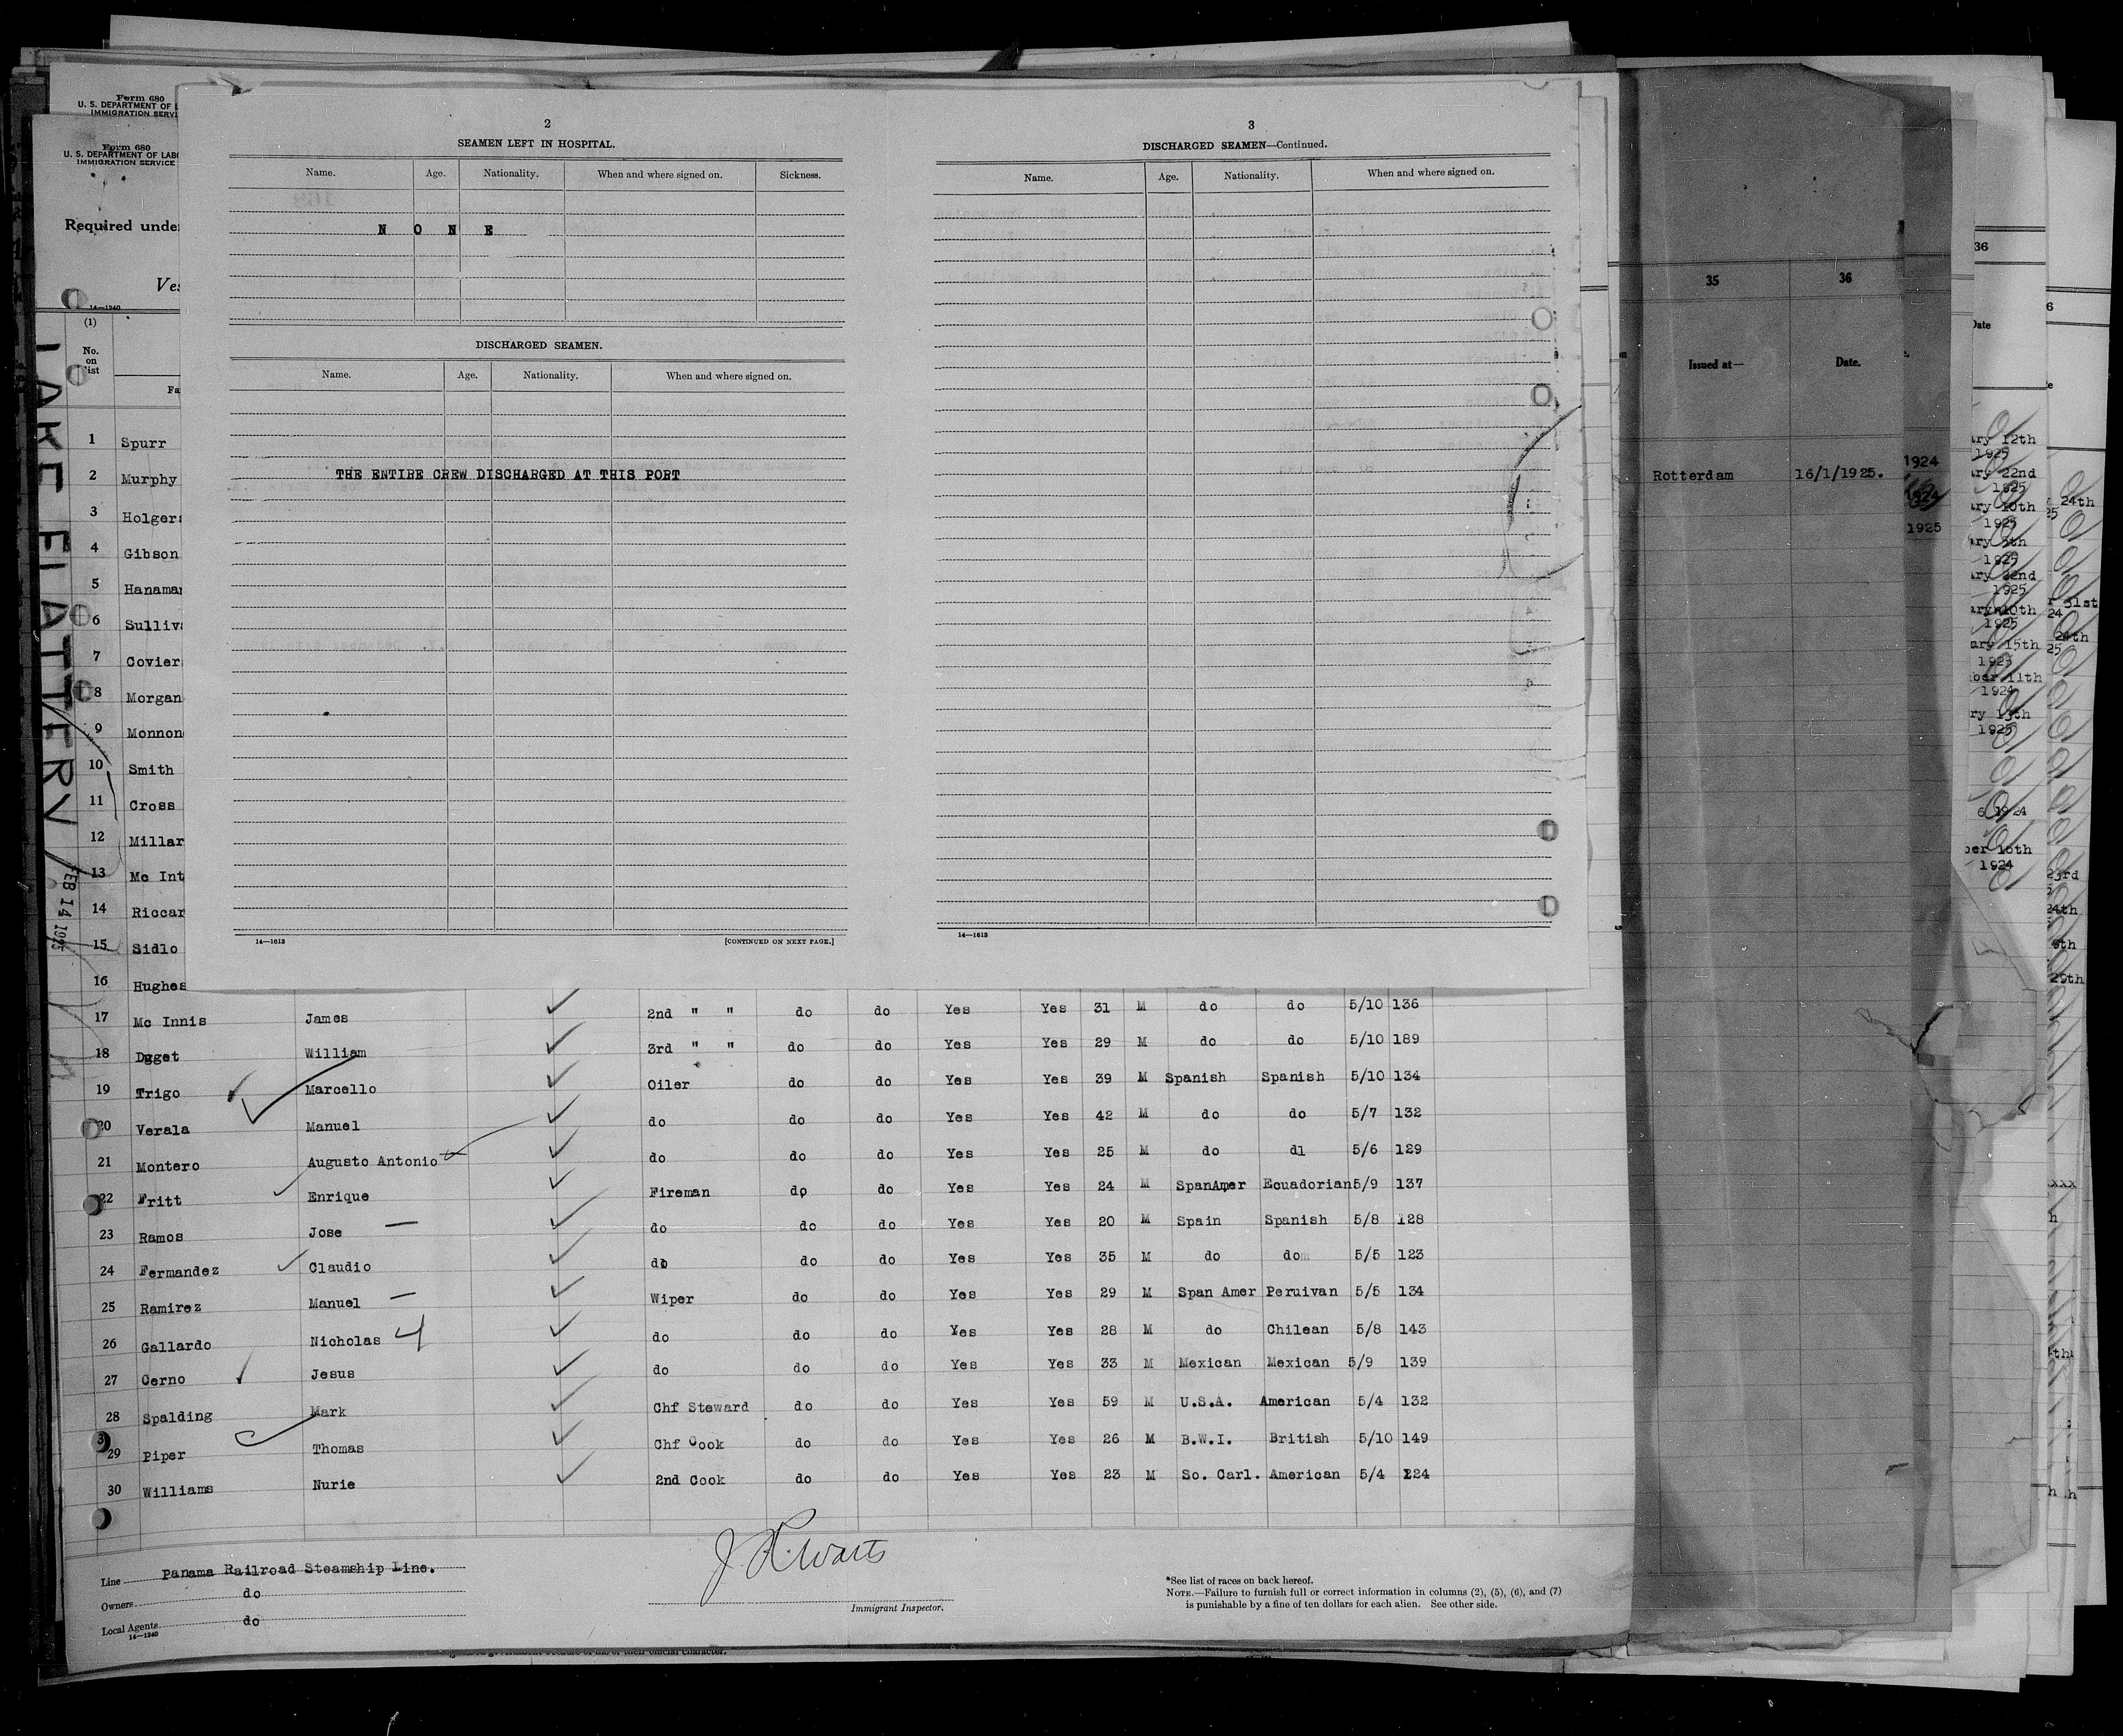 Form 680
U. S. DEPARTMENT OF L
IMMIGRATION SERVI
Form 680
U. S. DEPARTMENT OF LABO
IMMIGRATION SERVICE
Required unde
Ves
14—1240
(1)
No.
on
list
Fa
LAKE FLATTERY
FEB 14 1925
1 Spurr
2 Murphy
3 Holgers
4 Gibson
5 Hanama
6 Sulliva
7 Covier
8 Morgan
9 Monnon
10 Smith
11 Cross
12 Millar
13 Mc Int
14 Riccar
15 Sidlo
16 Hughes
2
SEAMEN LEFT IN HOSPITAL.
Name. Age. Nationality. When and where signed on. Sickness.
N O N E
DISCHARGED SEAMEN.
Name. Age. Nationality. When and where signed on.
THE ENTIRE CREW DISCHARGED AT THIS PORT
14—1613 [CONTINUED ON NEXT PAGE.]
3
DISCHARGED SEAMEN—Continued.
Name. Age. Nationality. When and where signed on.
14—1613
35 36
Issued at— Date.
Rotterdam 16/1/1925.
1924
1924
1925
36
Date
ary 12th
1925
ary 22nd
1925
ary 10th
1925
ary 5th
1925
ary 22nd
1925
ary 10th
1925
ary 15th
1925
ber 11th
1924
ry 13th
1925
6 1924
ber 16th
1924
6
24th
25
31st
24
24th
25
23rd
24th
6th
29th
xxx
h
17 Mc Innis James 2nd " " do do Yes Yes 31 M do do 5/10 136
18 Duget William 3rd " " do do Yes Yes 29 M do do 5/10 189
19 Trigo Marcello Oiler do do Yes Yes 39 M Spanish Spanish 5/10 134
20 Verala Manuel do do do Yes Yes 42 M do do 5/7 132
21 Montero Augusto Antonio do do do Yes Yes 25 M do dl 5/6 129
22 Fritt Enrique Fireman do do Yes Yes 24 M SpanAmer Ecuadorian 5/9 137
23 Ramos Jose do do do Yes Yes 20 M Spain Spanish 5/8 128
24 Fermandez Claudio do do do Yes Yes 35 M do do 5/5 123
25 Ramirez Manuel Wiper do do Yes Yes 29 M Span Amer Peruivan 5/5 134
26 Gallardo Nicholas do do do Yes Yes 28 M do Chilean 5/8 143
27 Cerno Jesus do do do Yes Yes 33 M Mexican Mexican 5/9 139
28 Spalding Mark Chf Steward do do Yes Yes 59 M U.S.A. American 5/4 132
29 Piper Thomas Chf Cook do do Yes Yes 26 M B.W.I. British 5/10 149
30 Williams Nurie 2nd Cook do do Yes Yes 23 M So. Carl. American 5/4 124
Line Panama Railroad Steamship Line.
Owners do
Local Agents do
14—1240
Immigrant Inspector.
*See list of races on back hereof.
NOTE.—Failure to furnish full or correct information in columns (2), (5), (6), and (7)
is punishable by a fine of ten dollars for each alien. See other side.